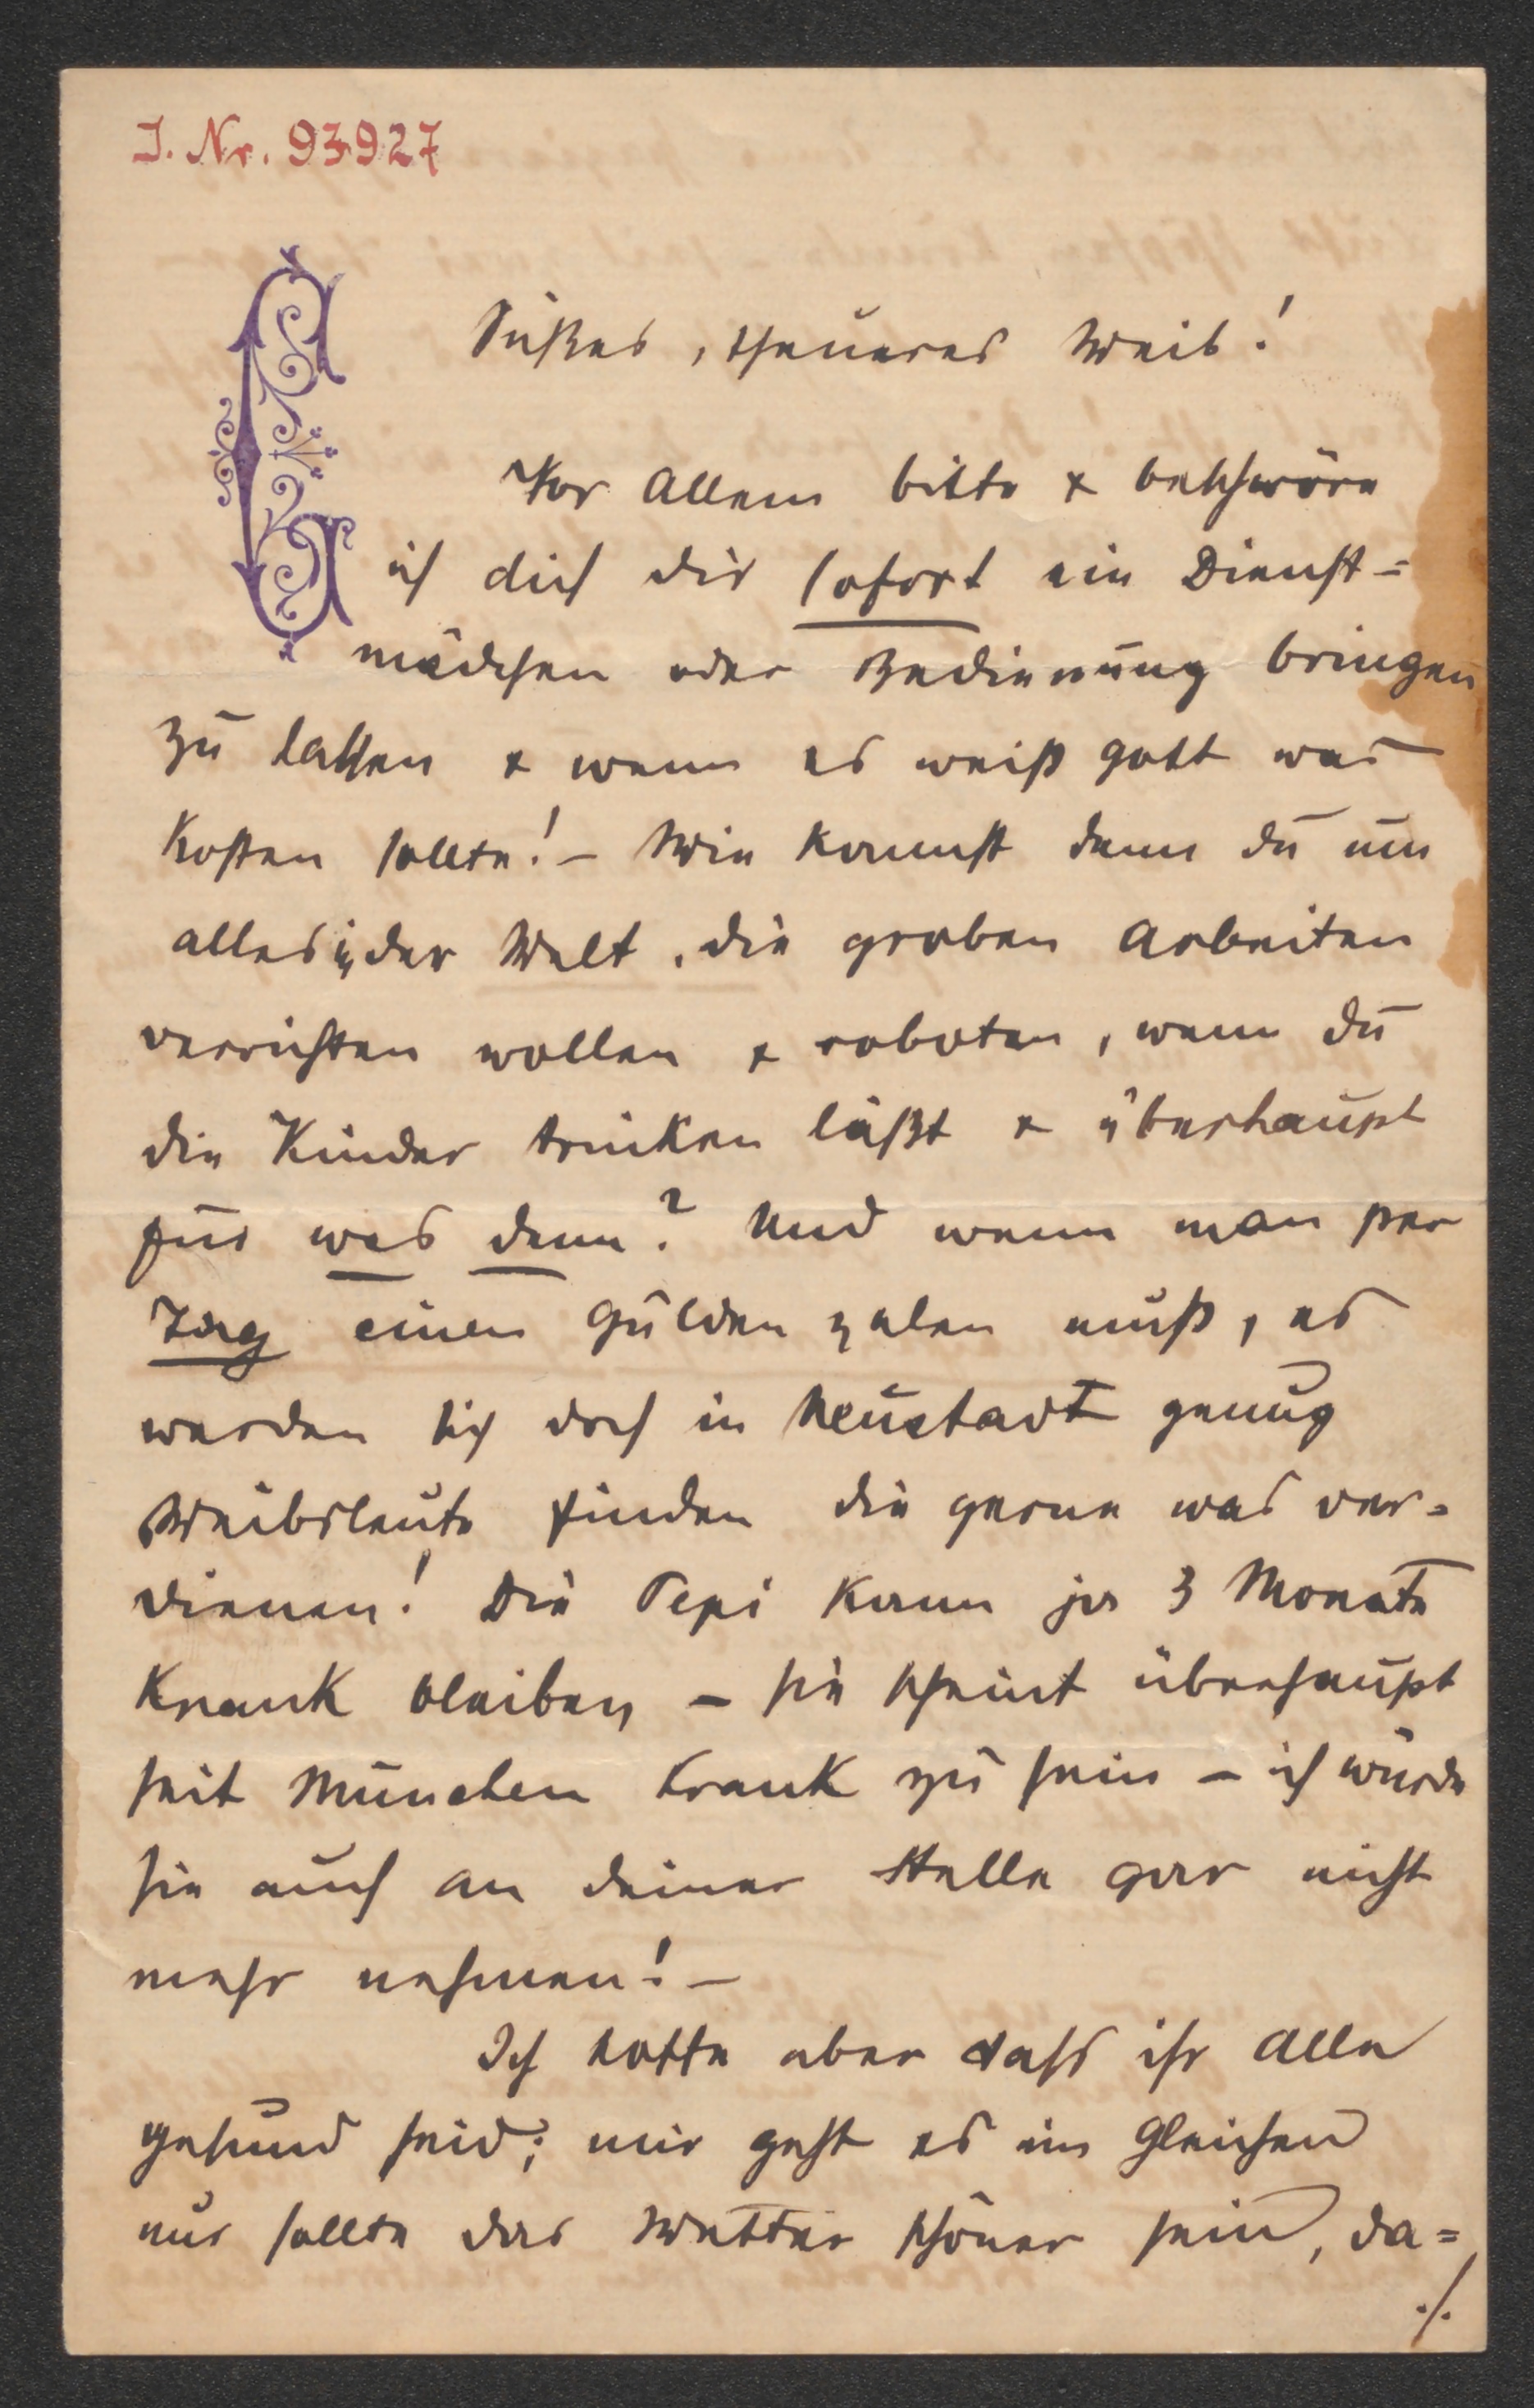 I. Nr. 93927
Süßes, theueres Weib!
Vor Allem bitte & beschwöre
ich dich dir sofort ein Dienst=
mädchen oder Bedienung bringen
zu lassen & wenn es weiß gott was
kosten sollte! – Wie kannst denn du um
alles in der Welt, die groben Arbeiten
verrichten wollen & roboten, wenn du
die Kinder trinken läßt & überhaupt
für was denn? Und wenn man per
Tag einen Gulden zalen muß, es
werden sich doch in Neustadt genug
Weibsleute finden die gerne was ver=
dienen! Die Pepi kann ja 3 Monate
krank bleiben – sie scheint überhaupt
seit München krank zu sein – ich würde
sie auch an deiner Stelle gar nicht
mehr nehmen! –
Ich hoffe aber dass ihr Alle
gesund seid; mir geht es im Gleichen
nur sollte das Wetter schöner sein, da=
./.